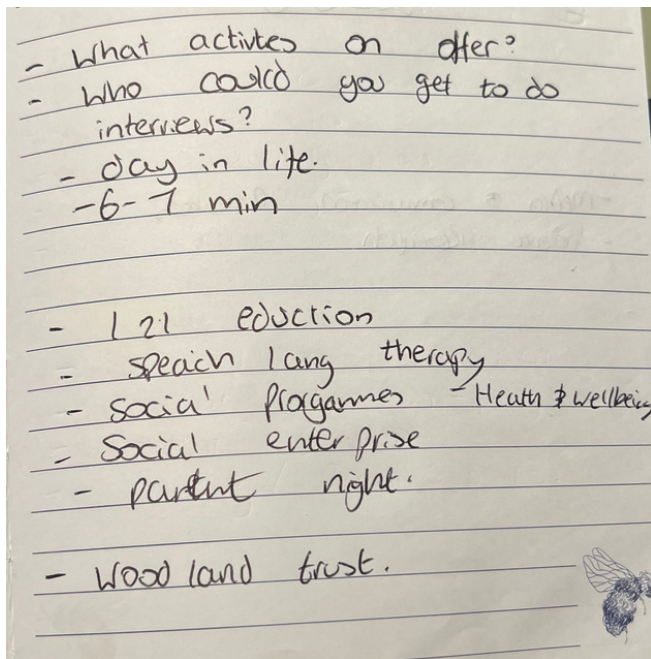 - What activtes on offer?
- Who could you get to do
interviews?
- day in life.
- 6-7 min
- 121 eduction
- speach lang therapy
- social progammes - Heath & wellbeing
- Social enterprise
- partent night.
- wood land trust.